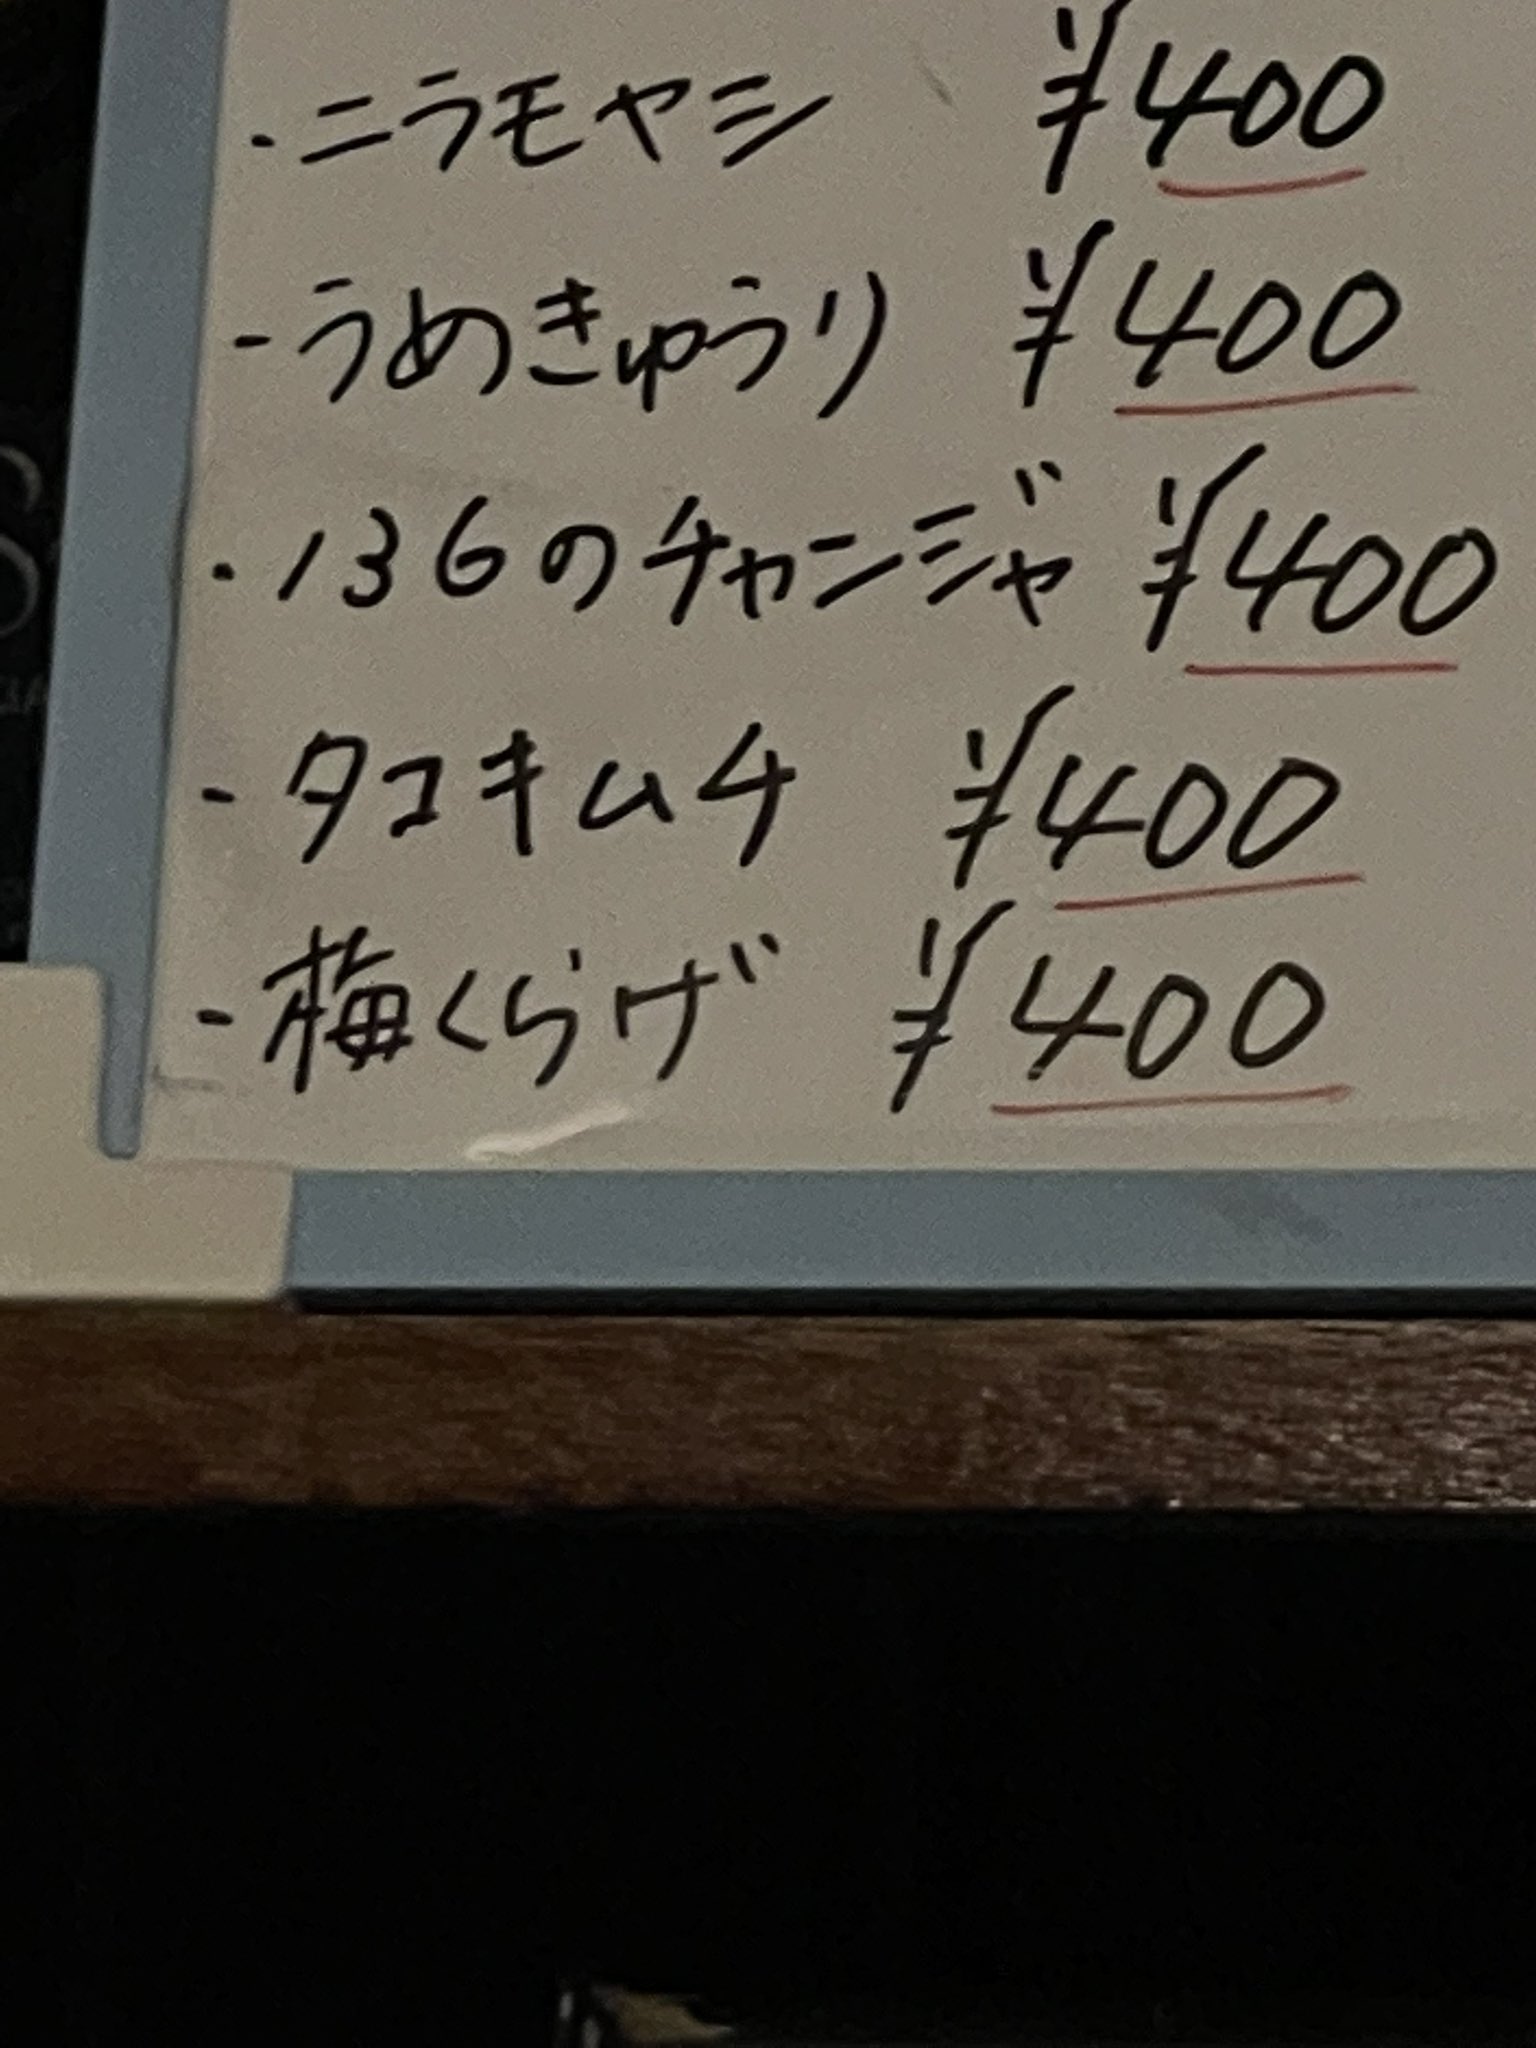 ・ニラモヤシ ¥400
-うめきゅうり ¥400
・136のチャンジャ ¥400
-タコキムチ ¥400
-梅くらげ ¥400